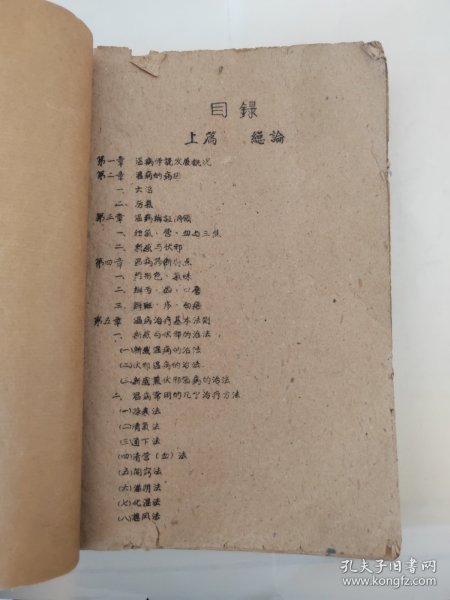 目錄
上篇 總論
第一章 温病学說发展概况
第二章 温病的病因
一、六淫
二、疠氣
第三章 温病辨証綱領
一、衛氣、营、血与三焦
二、新感与伏邪
第四章 温病診断
二、辨舌、齒、口唇
三、辨斑、疹、白㾦
第五章 温病治疗基本法則
一、新感与伏邪的治法
(一)新感温病的治法
(二)伏邪温病的治法
(三)新感兼伏邪温病的治法
二、温病常用的几个治疗方法
(一)解表法
(二)清氣法
(三)通下法
(四)清营(血)法
(五)開窍法
(六)滋阴法
(七)化湿法
(八)熄风法
孔夫子旧书网
www.kongfz.com